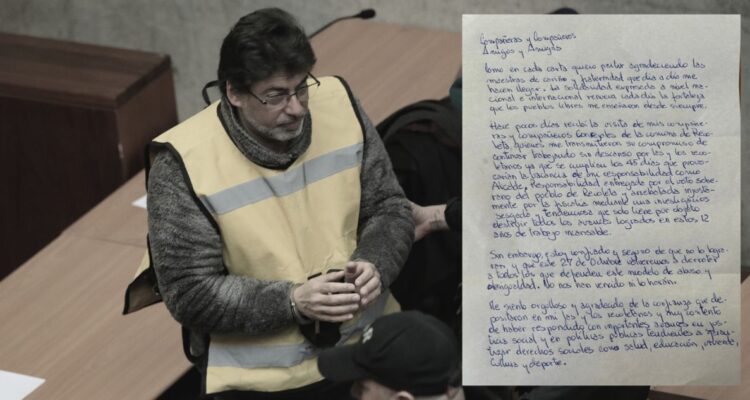 Compañeras y Compañeros
Amigos y Amigas
Como en cada carta quiero partir agradeciendo las
muestras de cariño y fraternidad que día a día me
hacen llegar. La solidaridad expresada a nivel na-
cional e internacional renueva cada día la fortaleza
que los pueblos libres me enseñaron desde siempre.
Hace pocos días recibí la visita de mis compañe-
ras y compañeros Concejales de la comuna de Reco-
leta, quienes me transmitieron su compromiso de
continuar trabajando sin descanso por las y los reco-
letanos ya que se cumplían los 45 días que provo-
carían la vacancia de mi responsabilidad como
Alcalde, Responsabilidad entregada por el voto sobe-
rano del pueblo de Recoleta y arrebatada injusta-
mente por la fiscalía mediante una investigación
sesgada y tendenciosa que solo tiene por objeto
destruir todos los avances logrados en estos 12
años de trabajo incansable.
Sin embargo, estoy confiado y seguro de que no lo logra-
ran y que este 27 de Octubre volveremos a derrotar
a todos los que defienden este modelo de abuso y
desigualdad. No nos han vencido ni lo harán.
Me siento orgulloso y agradecido de la confianza que de-
positaron en mi las y los recoletanos y muy contento
de haber respondido con importantes avances en jus-
ticia social y en políticas públicas tendientes a
derechos sociales como salud, educación, vivienda,
cultura y deporte.